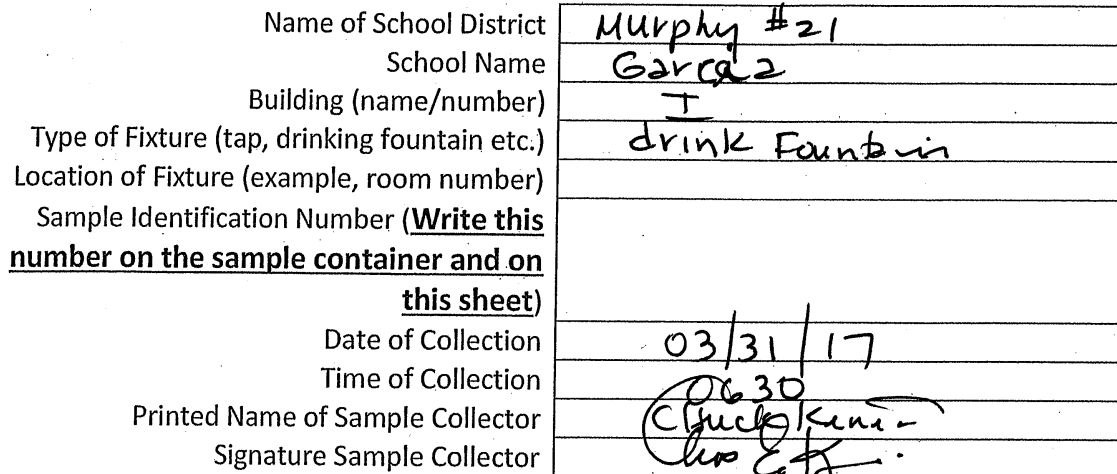 Name of School District Murphy #21
School Name Garcia
Building (name/number) I
Type of Fixture (tap, drinking fountain etc.) drink Fountain
Location of Fixture (example, room number)
Sample Identification Number (Write this
number on the sample container and on
this sheet)
Date of Collection 03/31/17
Time of Collection 0630
Printed Name of Sample Collector Chuck
Signature Sample Collector